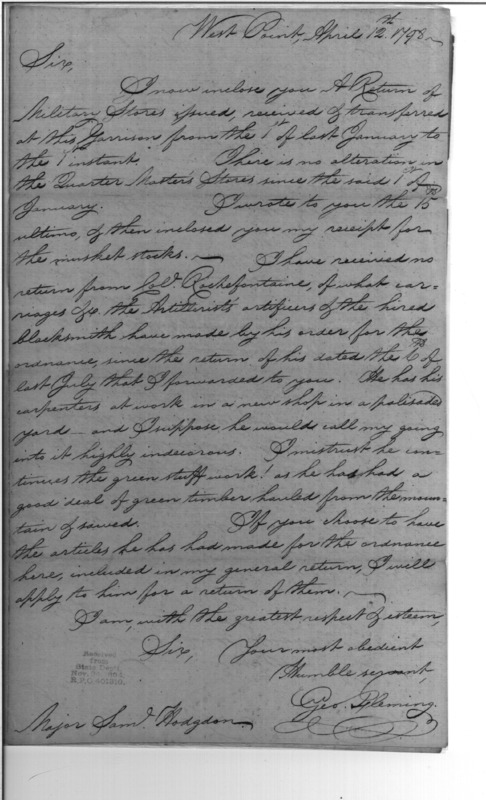 West Point, April 12th. 1798.
Sir,
I now inclose you A Return of
Military Stores issued, received & transferred
at this Garrison from the 1st of last January to
the 1st instant. There is no alteration in
the Quarter Master's Stores since the said 1st of
January. I wrote to you the 15th
ultimo, & then inclosed you my receipt for
the musket stocks.
I have received no
return from Colo. Rochefontaine, of what car-
riages &c. the Artillerists artificers & the hired
blacksmith have made by his order for the
ordnance, since the return of his dated the 6th of
last July that I forwarded to you. He has his
carpenters at work in a new shop in a palisaded
yard - and I suppose he would call my going
into it highly indecorous. I mistrust he con-
tinues the green stuff work! as he has had a
good deal of green timber hauled from the moun-
tain & sawed. If you choose to have
the articles he has had made for the ordnance
here, included in my general return, I will
apply to him for a return of them.
I am, with the greatest respect & esteem,
Sir, Your most obedient
& humble servant,
Geo. Fleming.
Major Saml. Hodgdon.
From
State Dept.